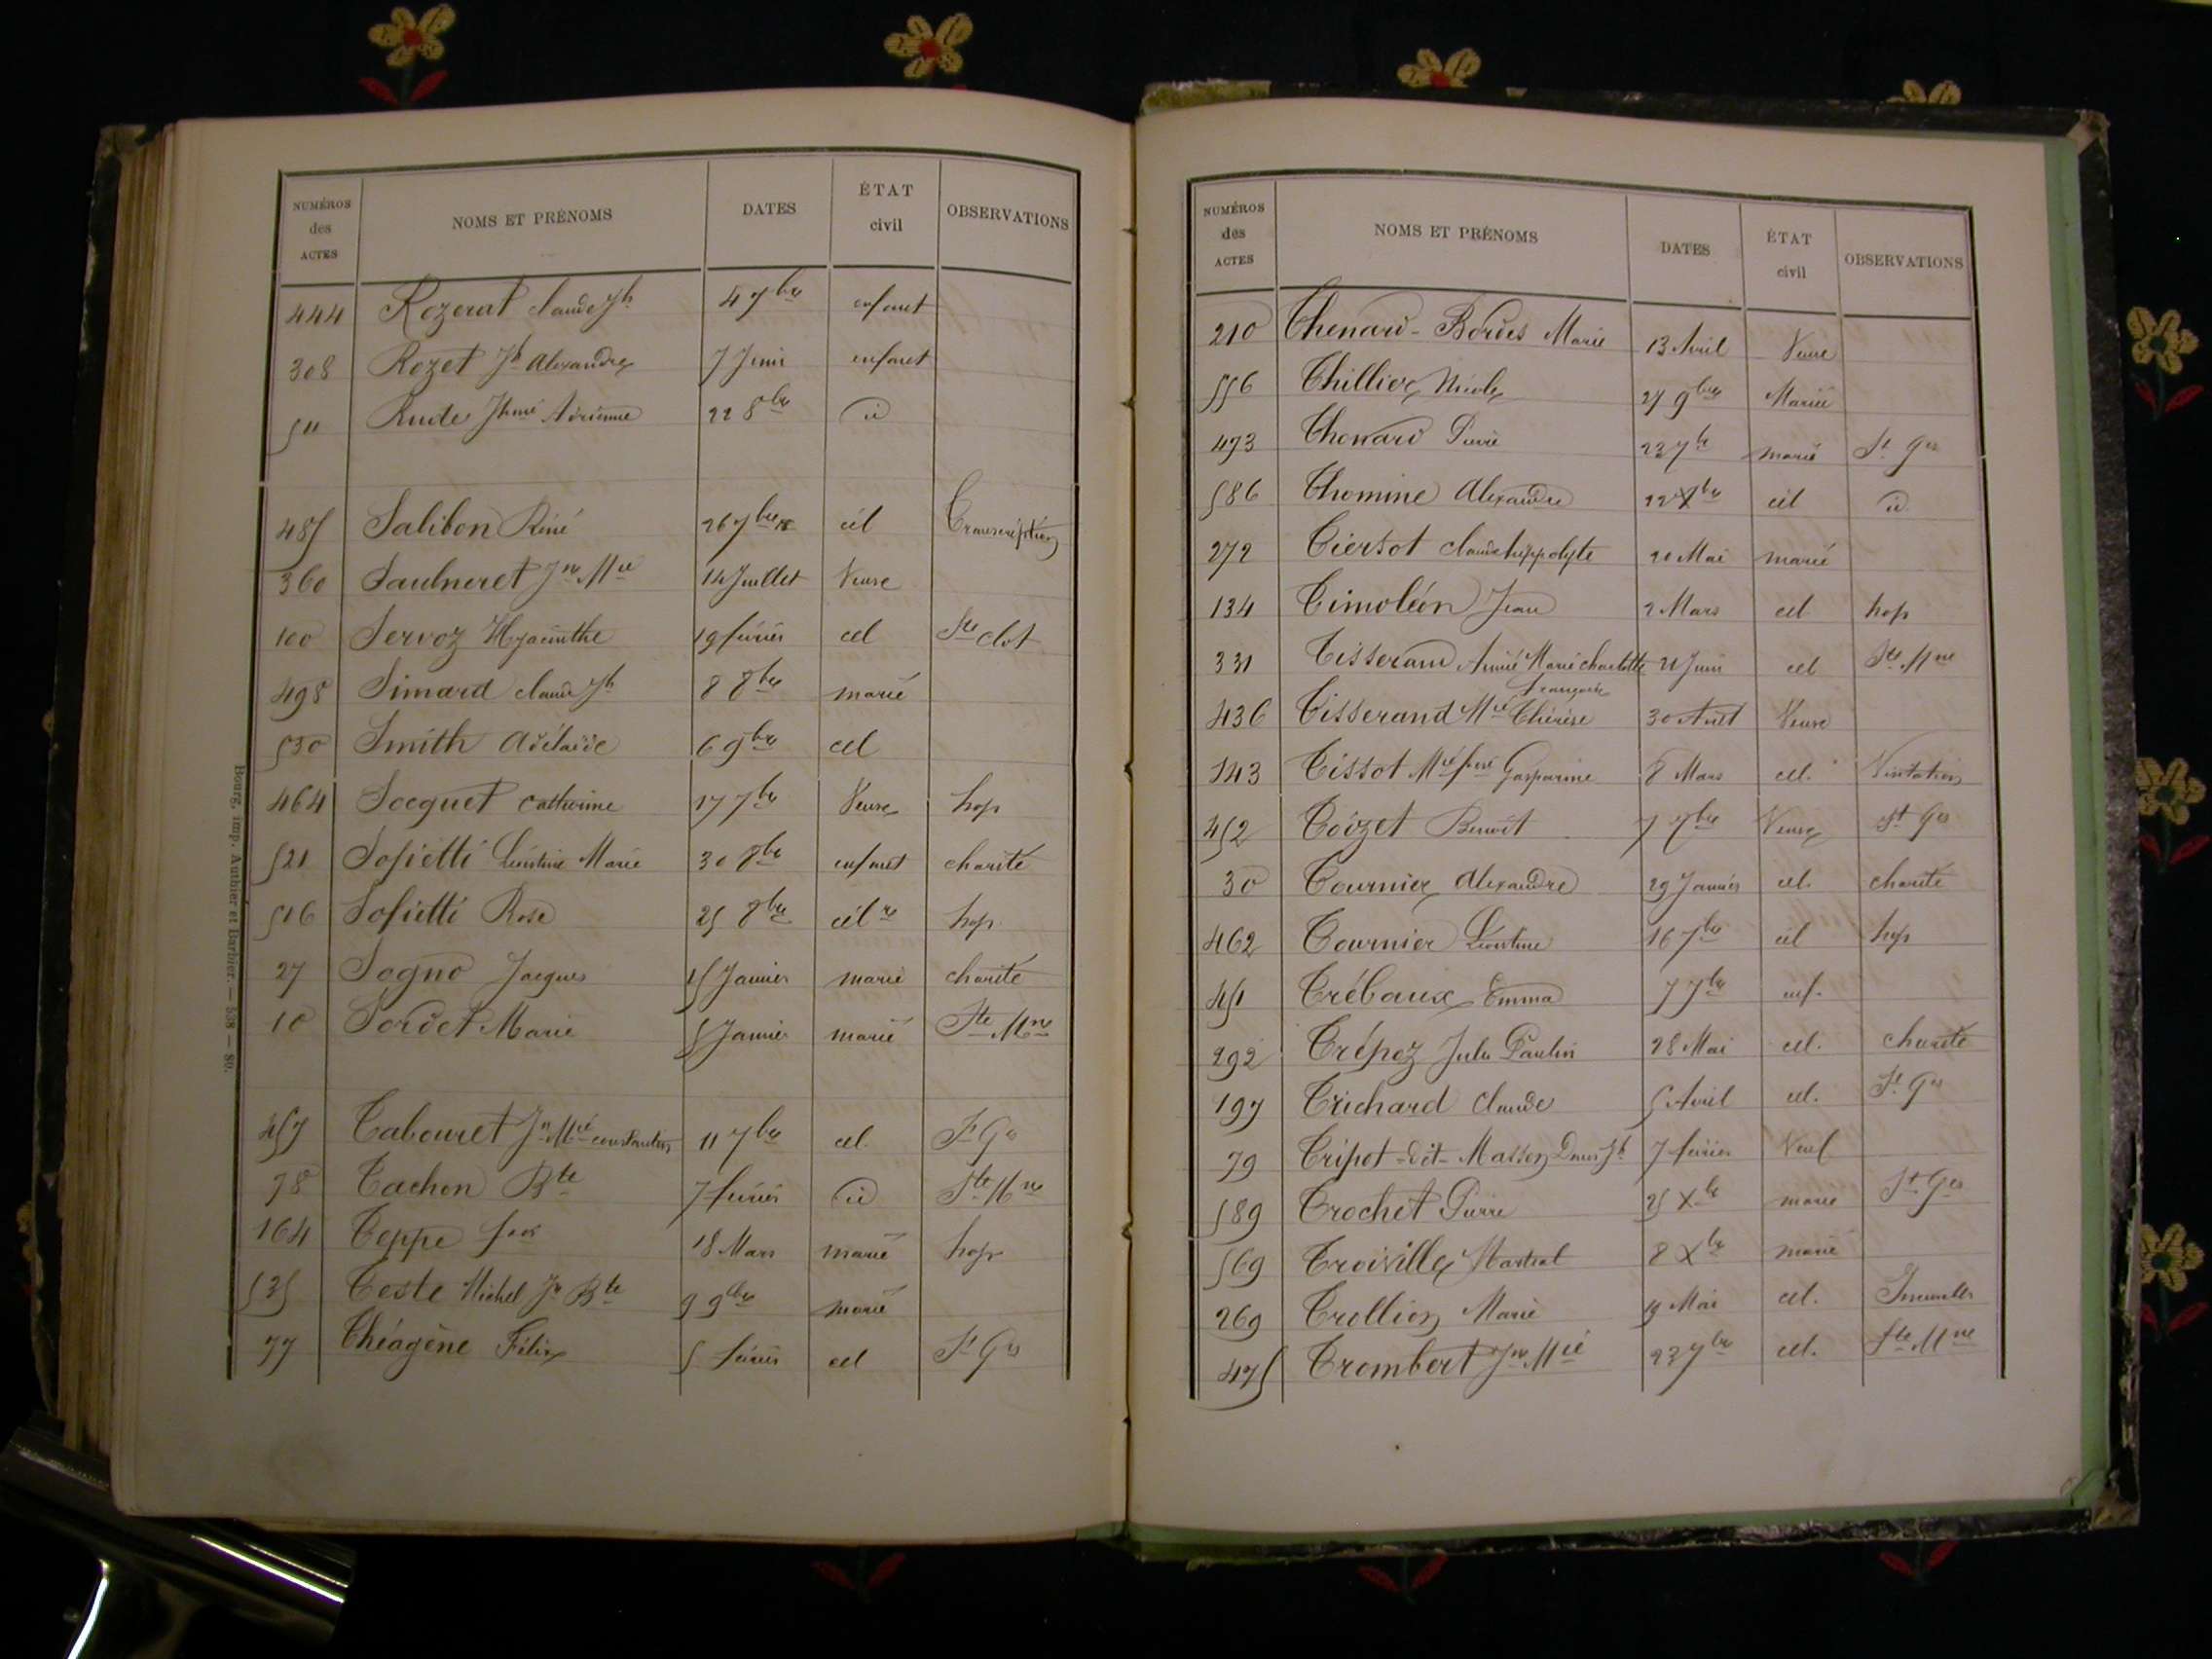 NUMÉROS des ACTES NOMS ET PRÉNOMS DATES ÉTAT civil OBSERVATIONS
444 Rozerat Claude Jh 4 7bre enfant
308 Rozet Jh Alexandre 7 Juin enfant
511 Rude Jhine Adrienne 22 8bre id
485 Salibon Réné 26 7bre cél Transcription
360 Saulneret Jne Mie 14 Juillet Veuve
100 Servoz Hyacinthe 19 février cel Ste Clot
498 Simard Claude Jh 8 8bre marié
530 Smith Adélaïde 6 9bre cel
464 Socquet Catherine 17 7bre Veuve hop
521 Sofietti Léontine Marie 30 8bre enfant charité
516 Sofietti Rose 25 8bre célre hop.
27 Sogno Jacques 25 Janvier marié charité
10 Sordet Marie 5 Janvier marié Ste Mne
457 Tabouret Jn Mie constantin 11 7bre cel. St Ges
78 Tachon Bte 7 février id Ste Mne
164 Teppe fois 18 Mars marié hop
535 Teste Michel Jn Bte 9 9bre marié
77 Théagène Félix 5 février cel St Ges
Bourg, imp. Authier et Barbier. — 598 — 80.
NUMÉROS des ACTES NOMS ET PRÉNOMS DATES ÉTAT civil OBSERVATIONS
210 Thenard - Bordes Marie 13 Avril Veuve
556 Thillier Nicole 27 9bre Mariée
473 Thonard Pierre 22 7bre marié St Ges
586 Thomine Alexandre 22 Xbre cél id
272 Tiersot Claude hippolyte 20 Mai marié
134 Timoléon Jean 2 Mars cel hop
331 Tisserand Aimée Marie charlotte 21 Juin cel Ste Mne
françoise
436 Tisserand Mie Thérèse 30 Août Veuve
143 Tissot Mie fse Gasparine 8 Mars cel. Visitation
452 Toizet Benoit 7 7bre Veuve St Ges
30 Tournier Alexandre 29 Janvier cel. charité
462 Tournier Léontine 16 7bre cél hop
451 Trébaux Emma 7 7bre enf.
292 Trépoz Jules Paulin 28 Mai cel. charité
197 Trichard Claude 5 Avril cel. St Ges
79 Tripot - dit - Masson Denis Jh 7 février Veuf
589 Trochet Pierre 25 Xbre marié St Ges
569 Troiville Martial 8 Xbre marié
269 Trollion Marie 19 Mai cel. Incurables
475 Trombert Jne Mie 23 7bre cel. Ste Mne